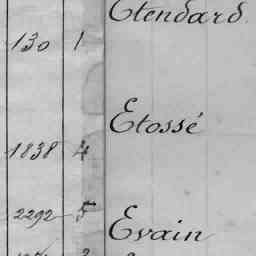 Etendard
130 1
Etossé
1838 4
2292 5
Evain